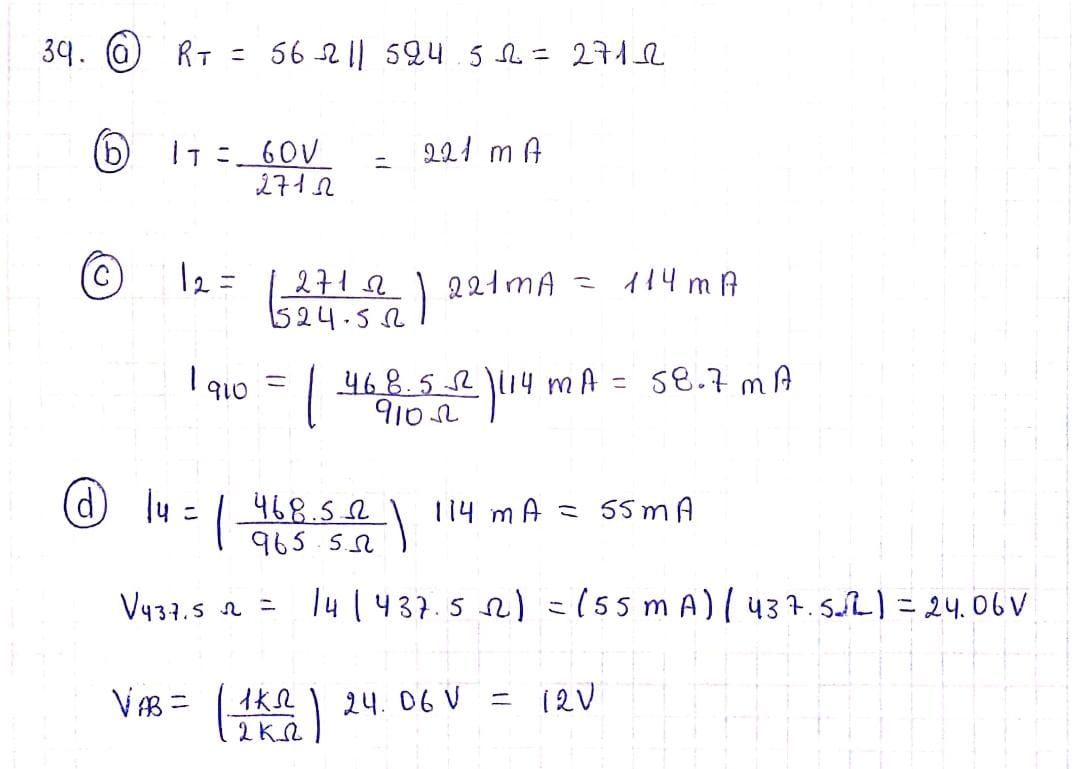 39. ⓐ RT = 56 Ω || 524.5 Ω = 271 Ω
ⓑ IT = 60V / 271 Ω = 221 mA
ⓒ I2 = (271 Ω / 524.5 Ω) 221 mA = 114 mA
I910 = (468.5 Ω / 910 Ω) 114 mA = 58.7 mA
ⓓ I4 = (468.5 Ω / 965.5 Ω) 114 mA = 55 mA
V437.5 Ω = I4 (437.5 Ω) = (55 mA)(437.5 Ω) = 24.06V
VAB = (1KΩ / 2KΩ) 24.06 V = 12V